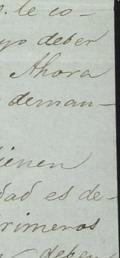 s. le co-
yo deber
Ahora
deman-
ienen
dad es de-
rimeros
deben